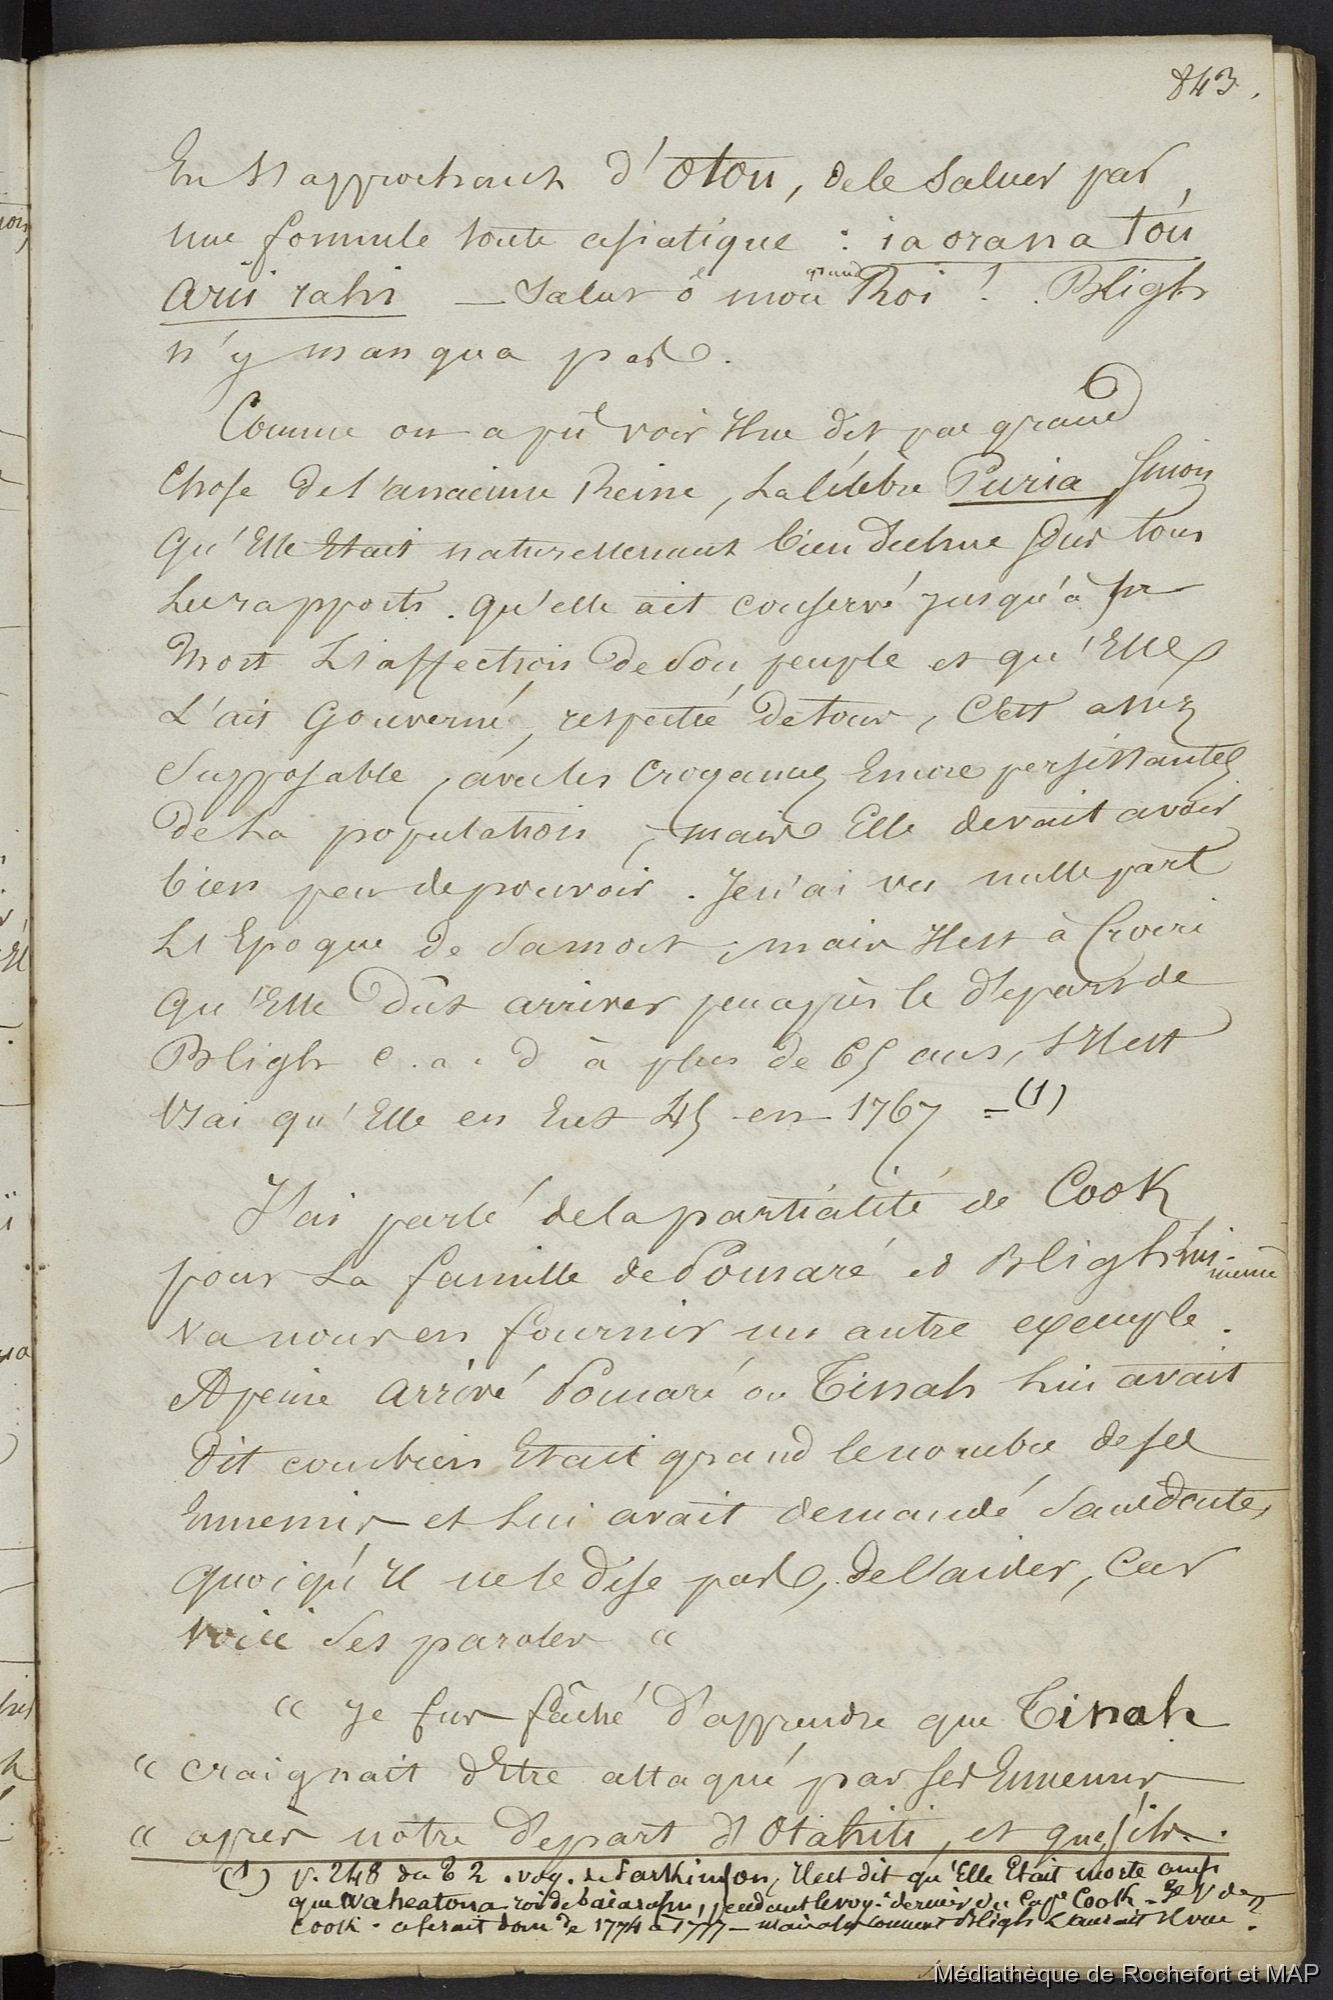 843.
En s'approchant d'Otou, de le saluer par
une formule toute asiatique : ia orana Tóu
arii rahi — Salut ô mon grand Roi ! . Bligh
n'y manqua pas.
Comme on a pu voir il ne dit pas grand
chose de l'ancienne Reine, la célèbre Puria sinon
qu'Elle Etait naturellement bien déchue sur tous
les rapports. qu'elle ait conservé jusqu'à sa
mort l'affection de son peuple et qu'Elle
l'ait Gouverné, respectée de tous, c'est assez
supposable, avec les croyances Encore persistantes
de la population, mais Elle devait avoir
bien peu de pouvoir. Je n'ai vu nulle part
l'Epoque de sa mort ; mais il est à croire
qu'Elle dût arriver peu après le départ de
Bligh c. a. d à plus de 65 ans, s'il est
vrai qu'Elle en Eut 45 en 1767 = (1)
J'ai parlé de la partialité de Cook
pour la famille de Pomaré et Bligh lui-même
va nous en fournir un autre exemple.
A peine arrivé Pomaré ou Tinah lui avait
dit combien Etait grand le nombre de ses
Ennemis et lui avait demandé sans doute,
quoiqu'il ne le dise pas, de l'aider, car
voici ses paroles «
« Je fus fâché d'apprendre que Tinah
« craignait d'Etre attaqué par ses Ennemis
« après notre départ d'Otahiti, et que s'ils
(1) v. 248 du t 2. voy. de Parkinson, il est dit qu'Elle Etait morte ainsi
que Waheatoua roi de taiarabu, pendant le voy. dernier du Cape Cook - 3e V de
Cook - ce serait donc de 1774 à 1777 — mais alors comment Bligh l'aurait il vue ?
Médiathèque de Rochefort et MAP